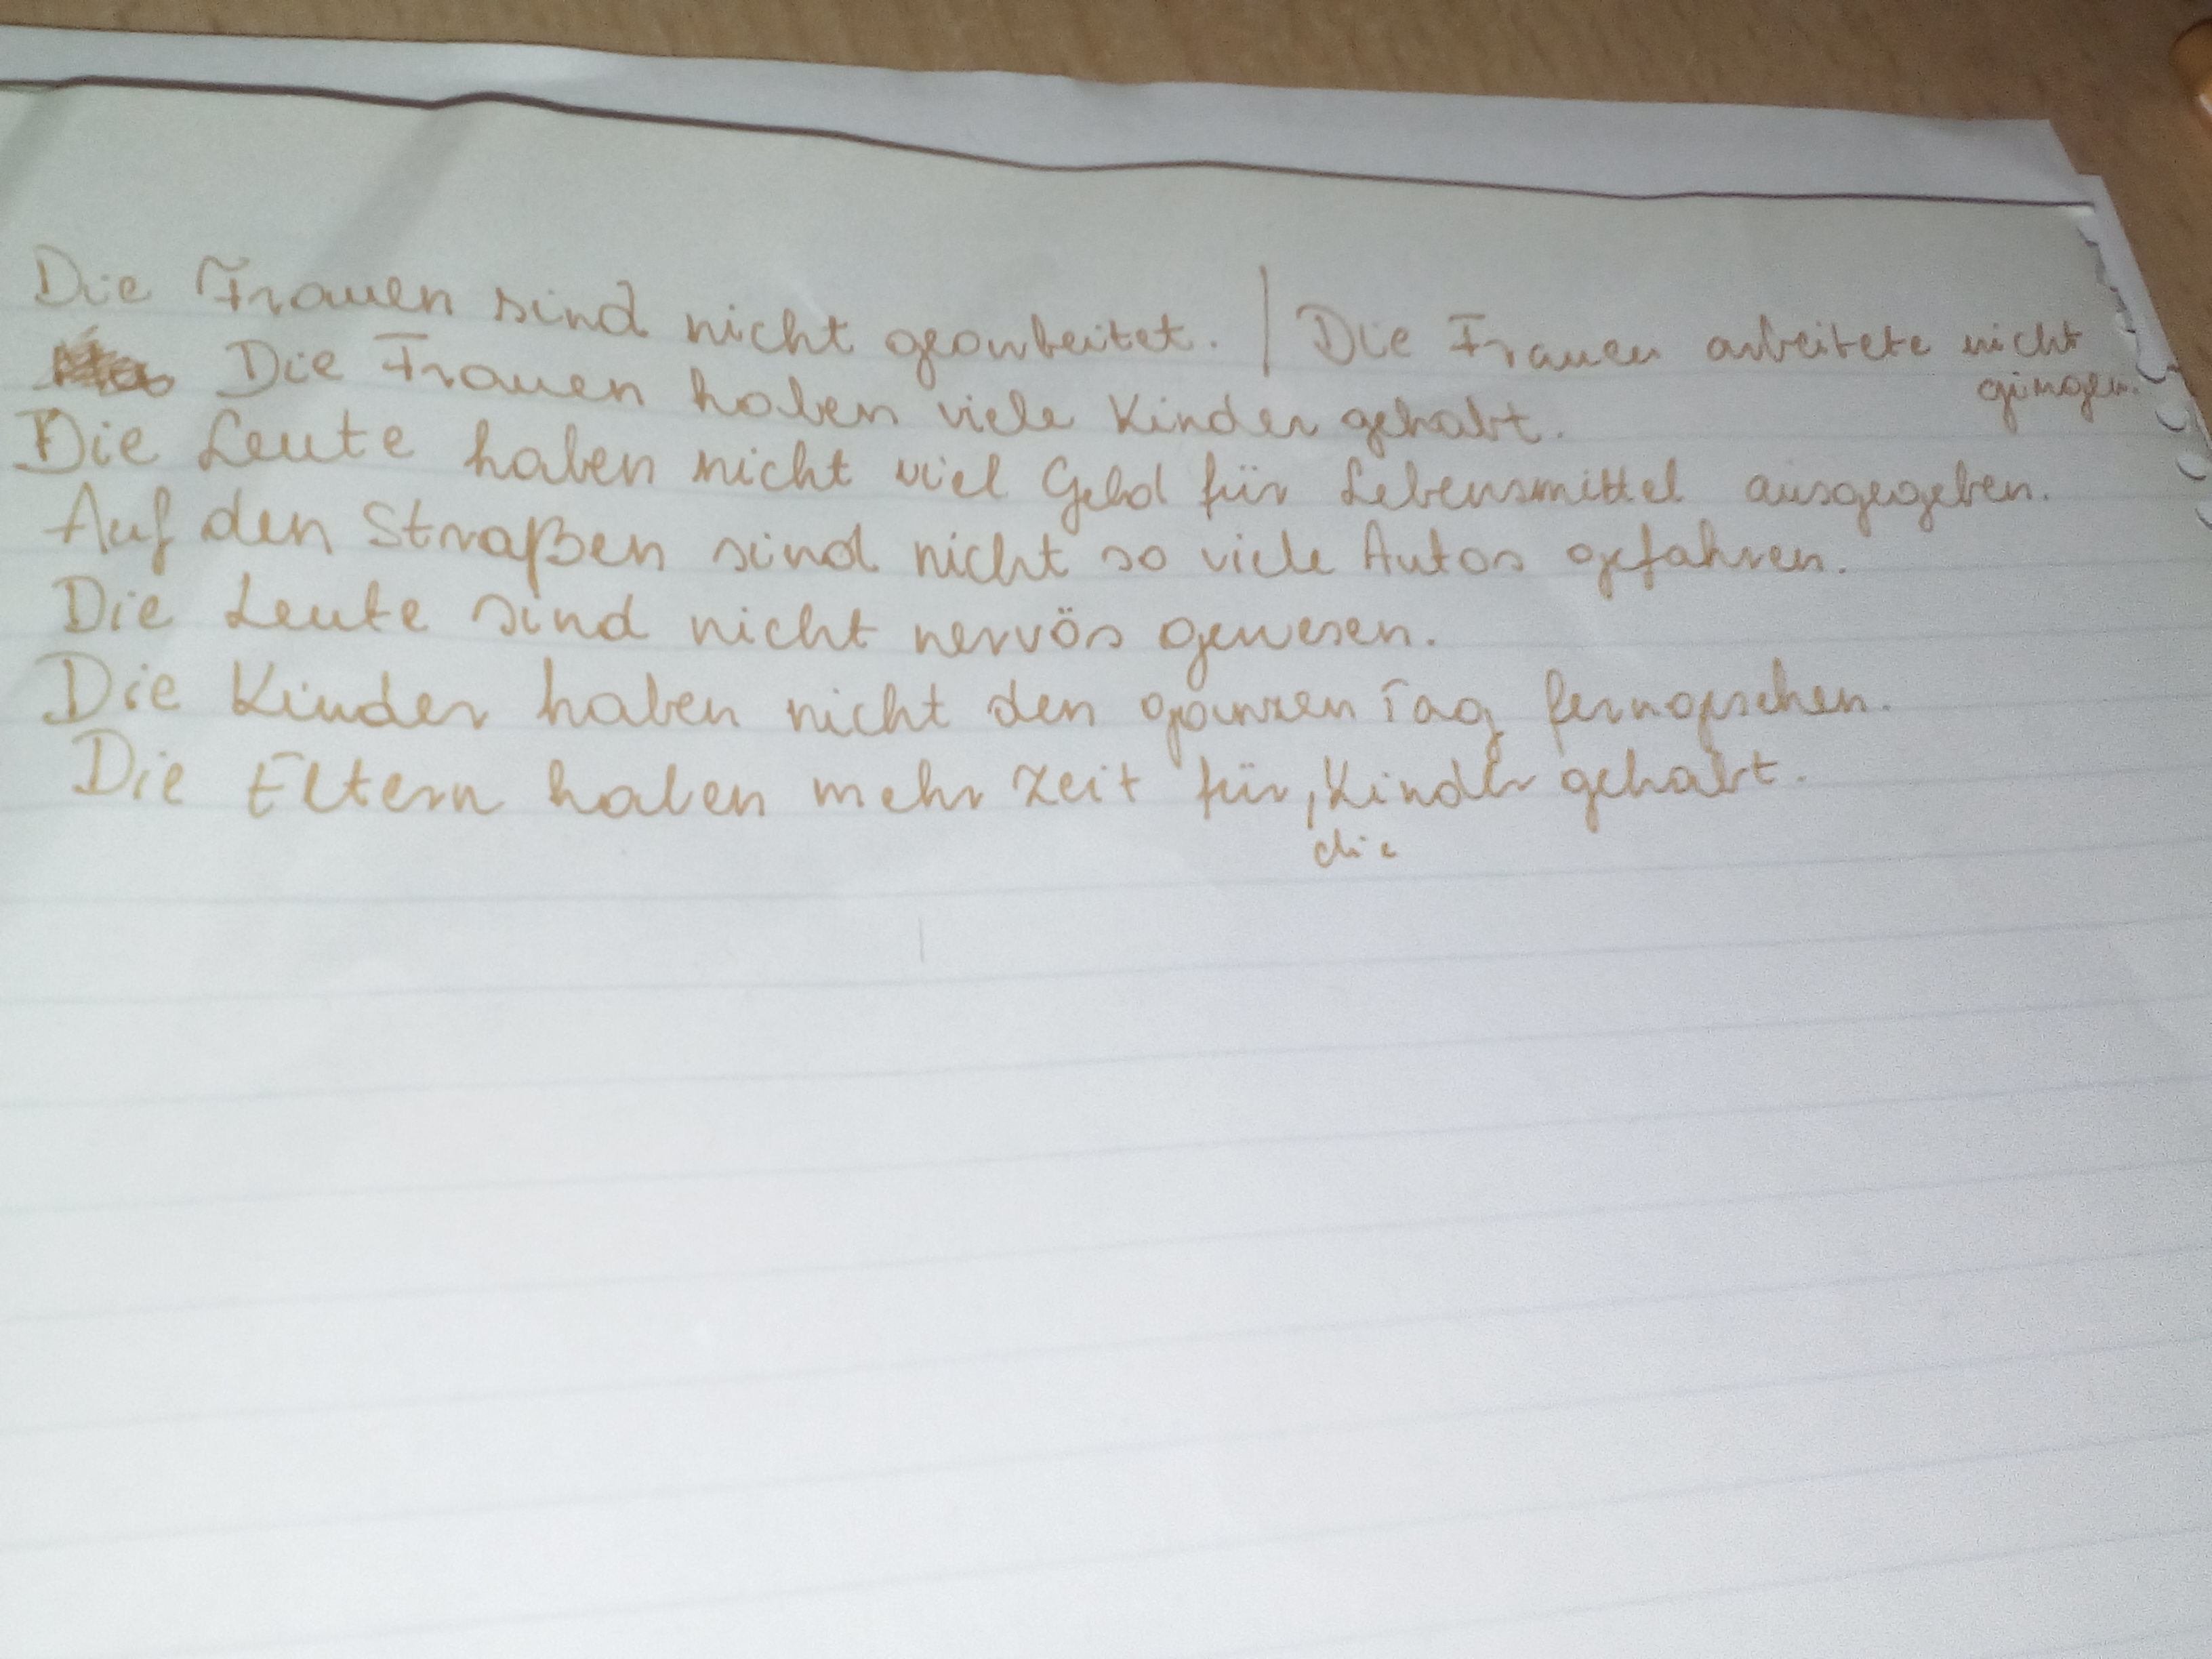 Die Frauen sind nicht gearbeitet. | Die Frauen arbeitete nicht
gingen.
Die Frauen haben viele Kinder gehabt.
Die Leute haben nicht viel Geld für Lebensmittel ausgegeben.
Auf den Straßen sind nicht so viele Autos gefahren.
Die Leute sind nicht nervös gewesen.
Die Kinder haben nicht den ganzen Tag ferngesehen.
Die Eltern haben mehr Zeit für, Kinder gehabt.
die